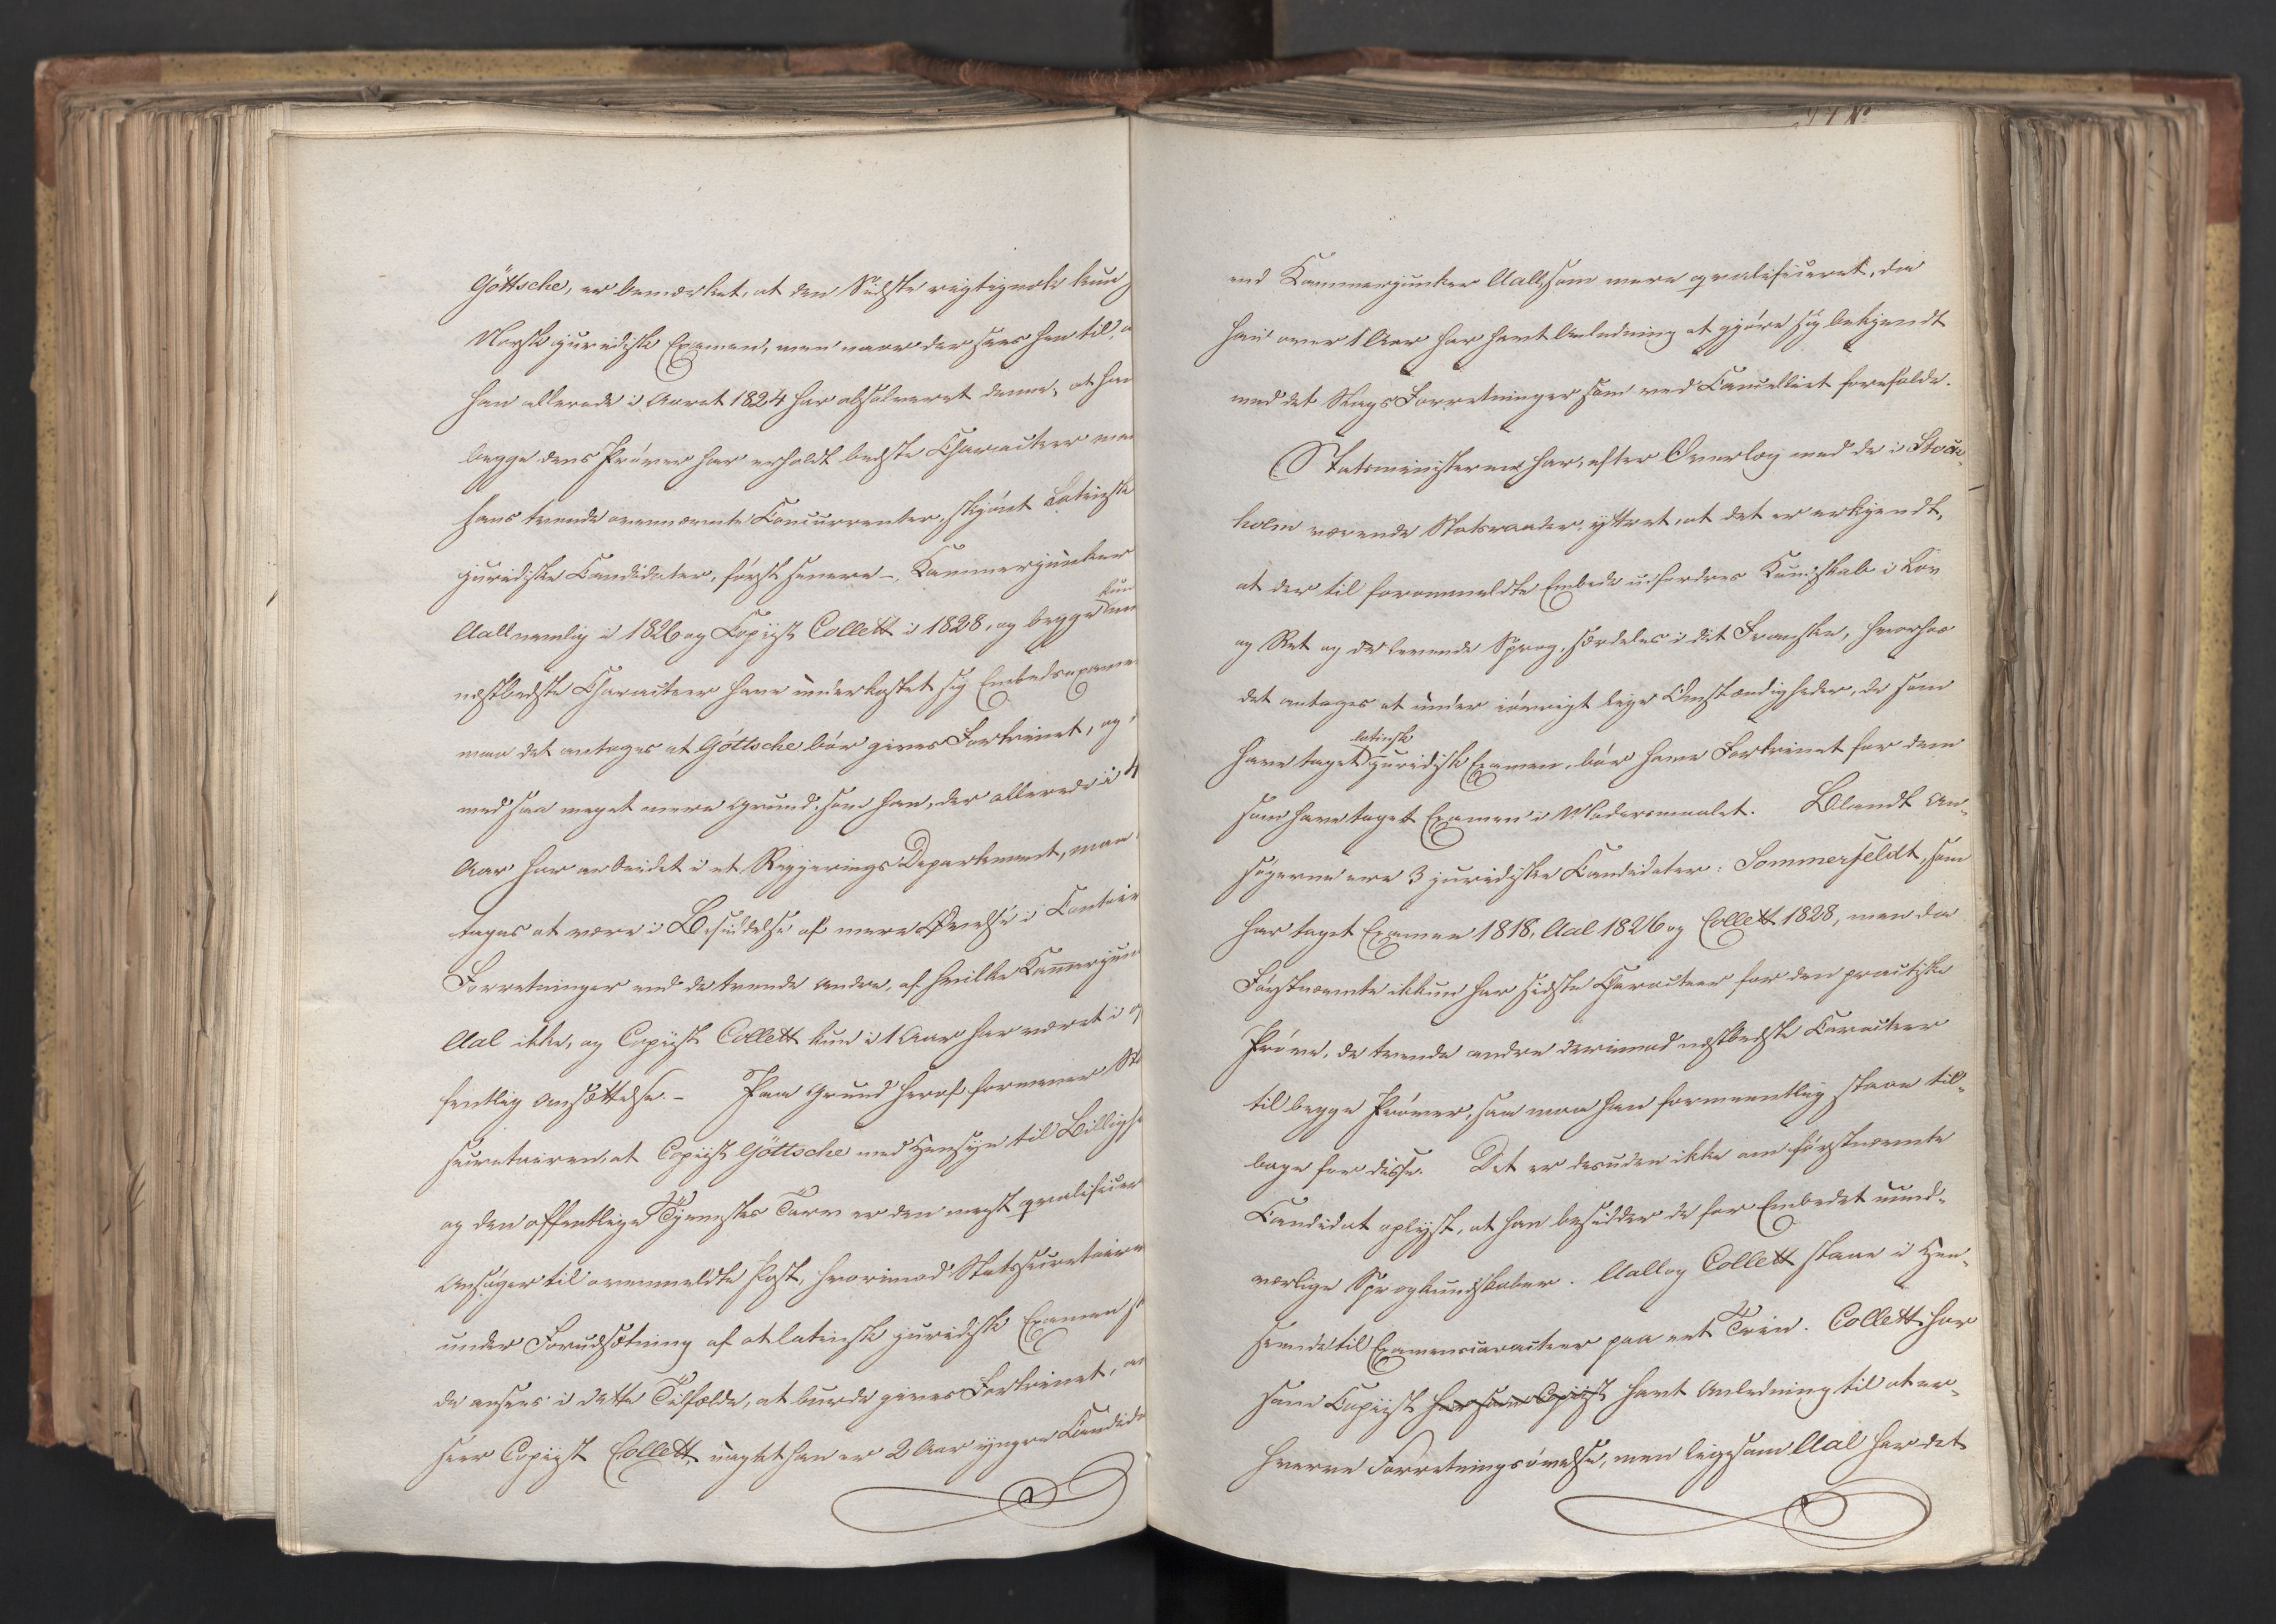 Göttsche, er bemærket, at den Sidste rigtignok kun
Norsk juridisk Examen, men naar der sees hen til, a
han allerede i Aaret 1824 har absolveret denne, at han
begge dens Prøver har erholdt bedste Characteer me
hans tvende ovennævnte Concurrenter, skjønt Latinske
juridiske Candidater, først senere –, Kammerjunker
kun
Aall nemlig i 1826 og Copiist Collett i 1828, og begge me
næstbedste Characteer have underkastet sig Embedsexame
maa det antages at Göttsche bør gives Fortrinet, og
med saa meget mere Grund, som han, der allerede i 4
Aar har arbeidet i et Regjerings Departement, maa
tages at være i Besiddelse af mere Øvelse i Contoir
Forretninger end de tvende Andre, af hvilke Kammerjun
Aal ikke, og Copiist Collett kun i 1 Aar har været i o
fentlig Ansættelse. – Paa Grund heraf formener St
secretairen, at Copiist Göttsche med Hensyn til Billigh
og den offentlige Tjenestes Tarv er den meest qvalificer
Ansøger til ovenmeldte Post, hvorimod Statssecretaire
under Forudsætning af at latinsk juridisk Examen s
de ansees i dette Tilfælde, at burde gives Fortrinet, a
seer Copiist Collett, uagtet han er 2 Aar yngre Candida
end Kammerjunker Aall, som mere qvalificeret, da
han over 1 Aar har havt Anledning at gjøre sig bekjendt
med det Slags Forretninger som ved Cancelliet forefalde.
Statsministeren har, efter Overlæg med de i Stock-
holm værende Statsraader, yttret, at det er erkjendt,
at der til forommeldte Embede udfordres Kundskab i Lov
og Ret og de levende Sprog, særdeles i det Franske, hvorhos
det antages at under iøvrigt lige Omstændigheder, de som
latinsk
have taget juridisk Examen, bør have Fortrinet for dem
som have taget Examen i Modersmaalet. Blandt An-
søgerne ere 3 juridiske Candidater: Sommerfeldt, som
har taget Examen 1818, Aal 1826 og Collett 1828, men da
Førstnævnte ikkun har sidste Characteer for den practiske
Prøve, de tvende andre derimod næstbedste Caracteer
til begge Prøver, saa maa han formeentlig staae til-
bage for disse. Det er desuden ikke om førstnævnte
Candidat oplyst, at han besidder de for Embedet nød-
værlige Sprogkundskaber. Aall og Collett staae i Hen-
seende til Examenscaracteer paa eet Trin. Collett har
som Copiist har som Copiist havt Anledning til at er-
hverve Forretningsøvelse, men ligesom Aal har det